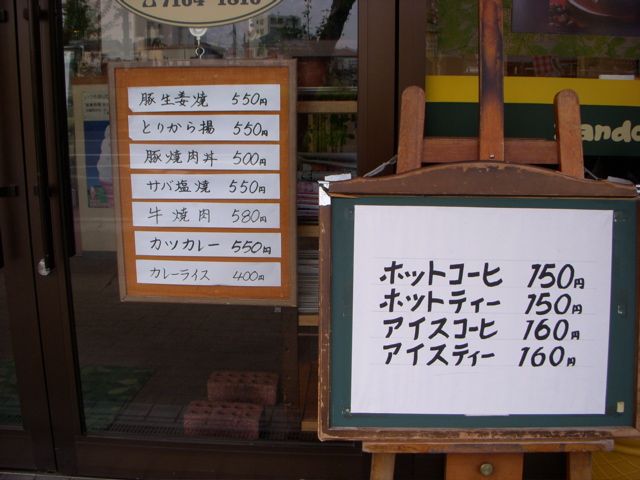 7164-1810
豚生姜焼 550円
とりから揚 550円
豚焼肉丼 500円
サバ塩焼 550円
牛焼肉 580円
カツカレー 550円
カレーライス 400円
ando
ホットコーヒ 150円
ホットティー 150円
アイスコーヒ 160円
アイスティー 160円